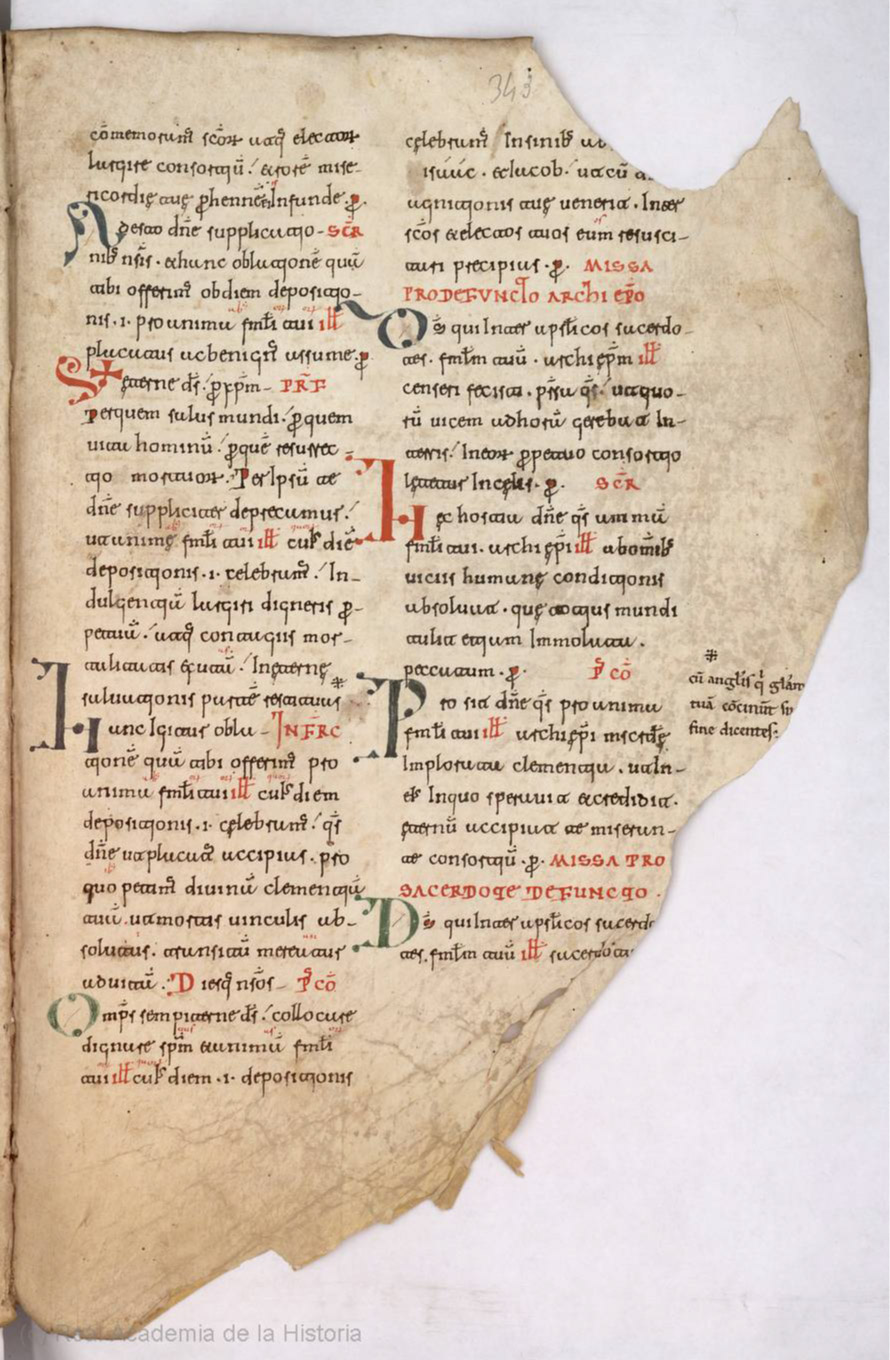 343
cōmemorant̄ scōꝝ ꝛatq̄ electoꝝ
largire consortiū. et rorē mise-
ricordię tuę ꝑhennē infunde. ꝑ.
Adesto dn̄e supplicatio- SCR̄
nib; nr̄is. et hanc oblationē quā
tibi offerim̄ ob diem depositio-
nis .i. pro anima famł̄i tui ill̄
placatus ac benign̄ assume. ꝑ
S̄ eterne d̄s. ꝑ xp̄m- PRF̄
Per quem salus mundi. ꝑ quem
uita hominū. ꝑ quē resurrec-
tio mortuoꝝ. Per ipsū te
dn̄e suppliciter deprecamur.
ut animę famł̄i tui ill̄ cui; diē
depositionis .i. celebram̄. In-
dulgentiā largiri digneris ꝑ-
petuā. atq̄ contagiis mor-
talitatis exutā. In eternę
saluationis partē restituas
Hanc igitur obla- INFRC
tionē quā tibi offerim̄ pro
anima famł̄i tui ill̄ cui; diem
depositionis .i. celebram̄. qs̄
dn̄e ut placat̄ accipias. pro
quo petim̄ diuinā clementiā
tuā. ut mortis uinculis ab-
solutus. transitū mereatur
ad uitā. Diesq̄ nr̄os- P̄ CŌ
Omp̄s sempiterne d̄s. collocare
dignare sp̄m et animā famł̄i
tui ill̄ cui; diem .i. depositionis
celebram̄ In sinib;
isaac. et iacob. ut cū
agnitionis tuę uenerit. Inter
scōs et electos tuos eum resusci-
tari precipias. ꝑ. MISSA
PRO DEFVNCTO ARCHI EPŌ
Ds̄ qui Inter apostł̄icos sacerdo-
tes. famł̄m tuū. archiep̄m ill̄
censeri fecisti. pr̄sta qs̄. ut quo-
rū uicem ad horā gerebat In-
terris. In eoꝝ ꝑpetuo consortio
lętetur In cęlis. ꝑ. SCR̄
Hęc hostia dn̄e qs̄ animā
famł̄i tui. archiep̄i ill̄ ab omib;
uiciis humanę condicionis
absoluat. quę tocius mundi
tulit etiam Immolata.
peccatum. ꝑ. P̄ CŌ
Pro sit dn̄e qs̄ pro anima
famł̄i tui ill̄ archiep̄i miscdię
Implorata clementia. ut In-
ei; In quo sperauit et credidit.
ęternū accipiat te miseran-
te consortiū. ꝑ. MISSA PRO
SACERDOTE DEFVNCTO.
Ds̄ qui Inter apostł̄icos sacerdo
tes. famł̄m tuū ill̄ sacerdota
cū angł̄is q̄ glām
tuā cōcinūt
fine dicentes:
Real Academia de la Historia